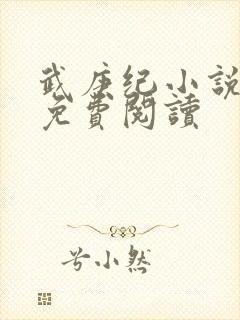 武庚纪小説
免費閱讀
兮小然